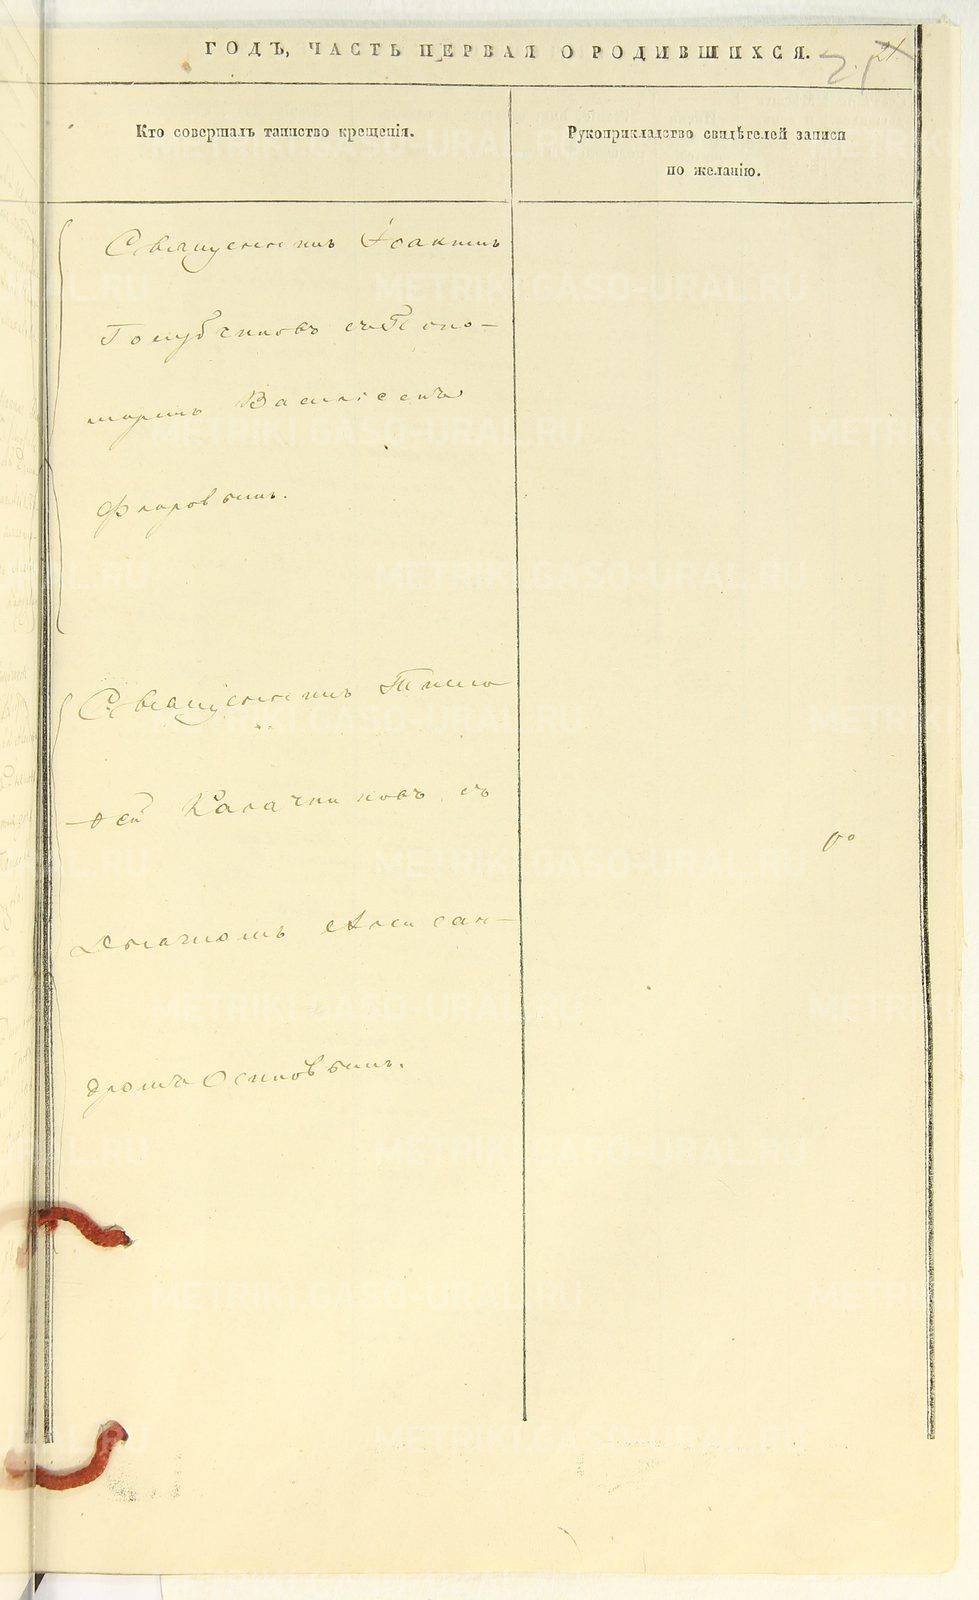 ГОДЪ, ЧАСТЬ ПЕРВАЯ О РОДИВШИХСЯ.
Кто совершалъ таинство крещенія.
Рукоприкладство свидѣтелей записи
по желанію.
Священникъ Іоакимъ
Голубчиковъ съ Поно-
маремъ Васи
Флоровымъ.
Священникъ Тимо
ѳей Калачниковъ съ
Дьячкомъ Алексан-
дромъ Осиповымъ.
METRIKI.GASO-URAL.RU